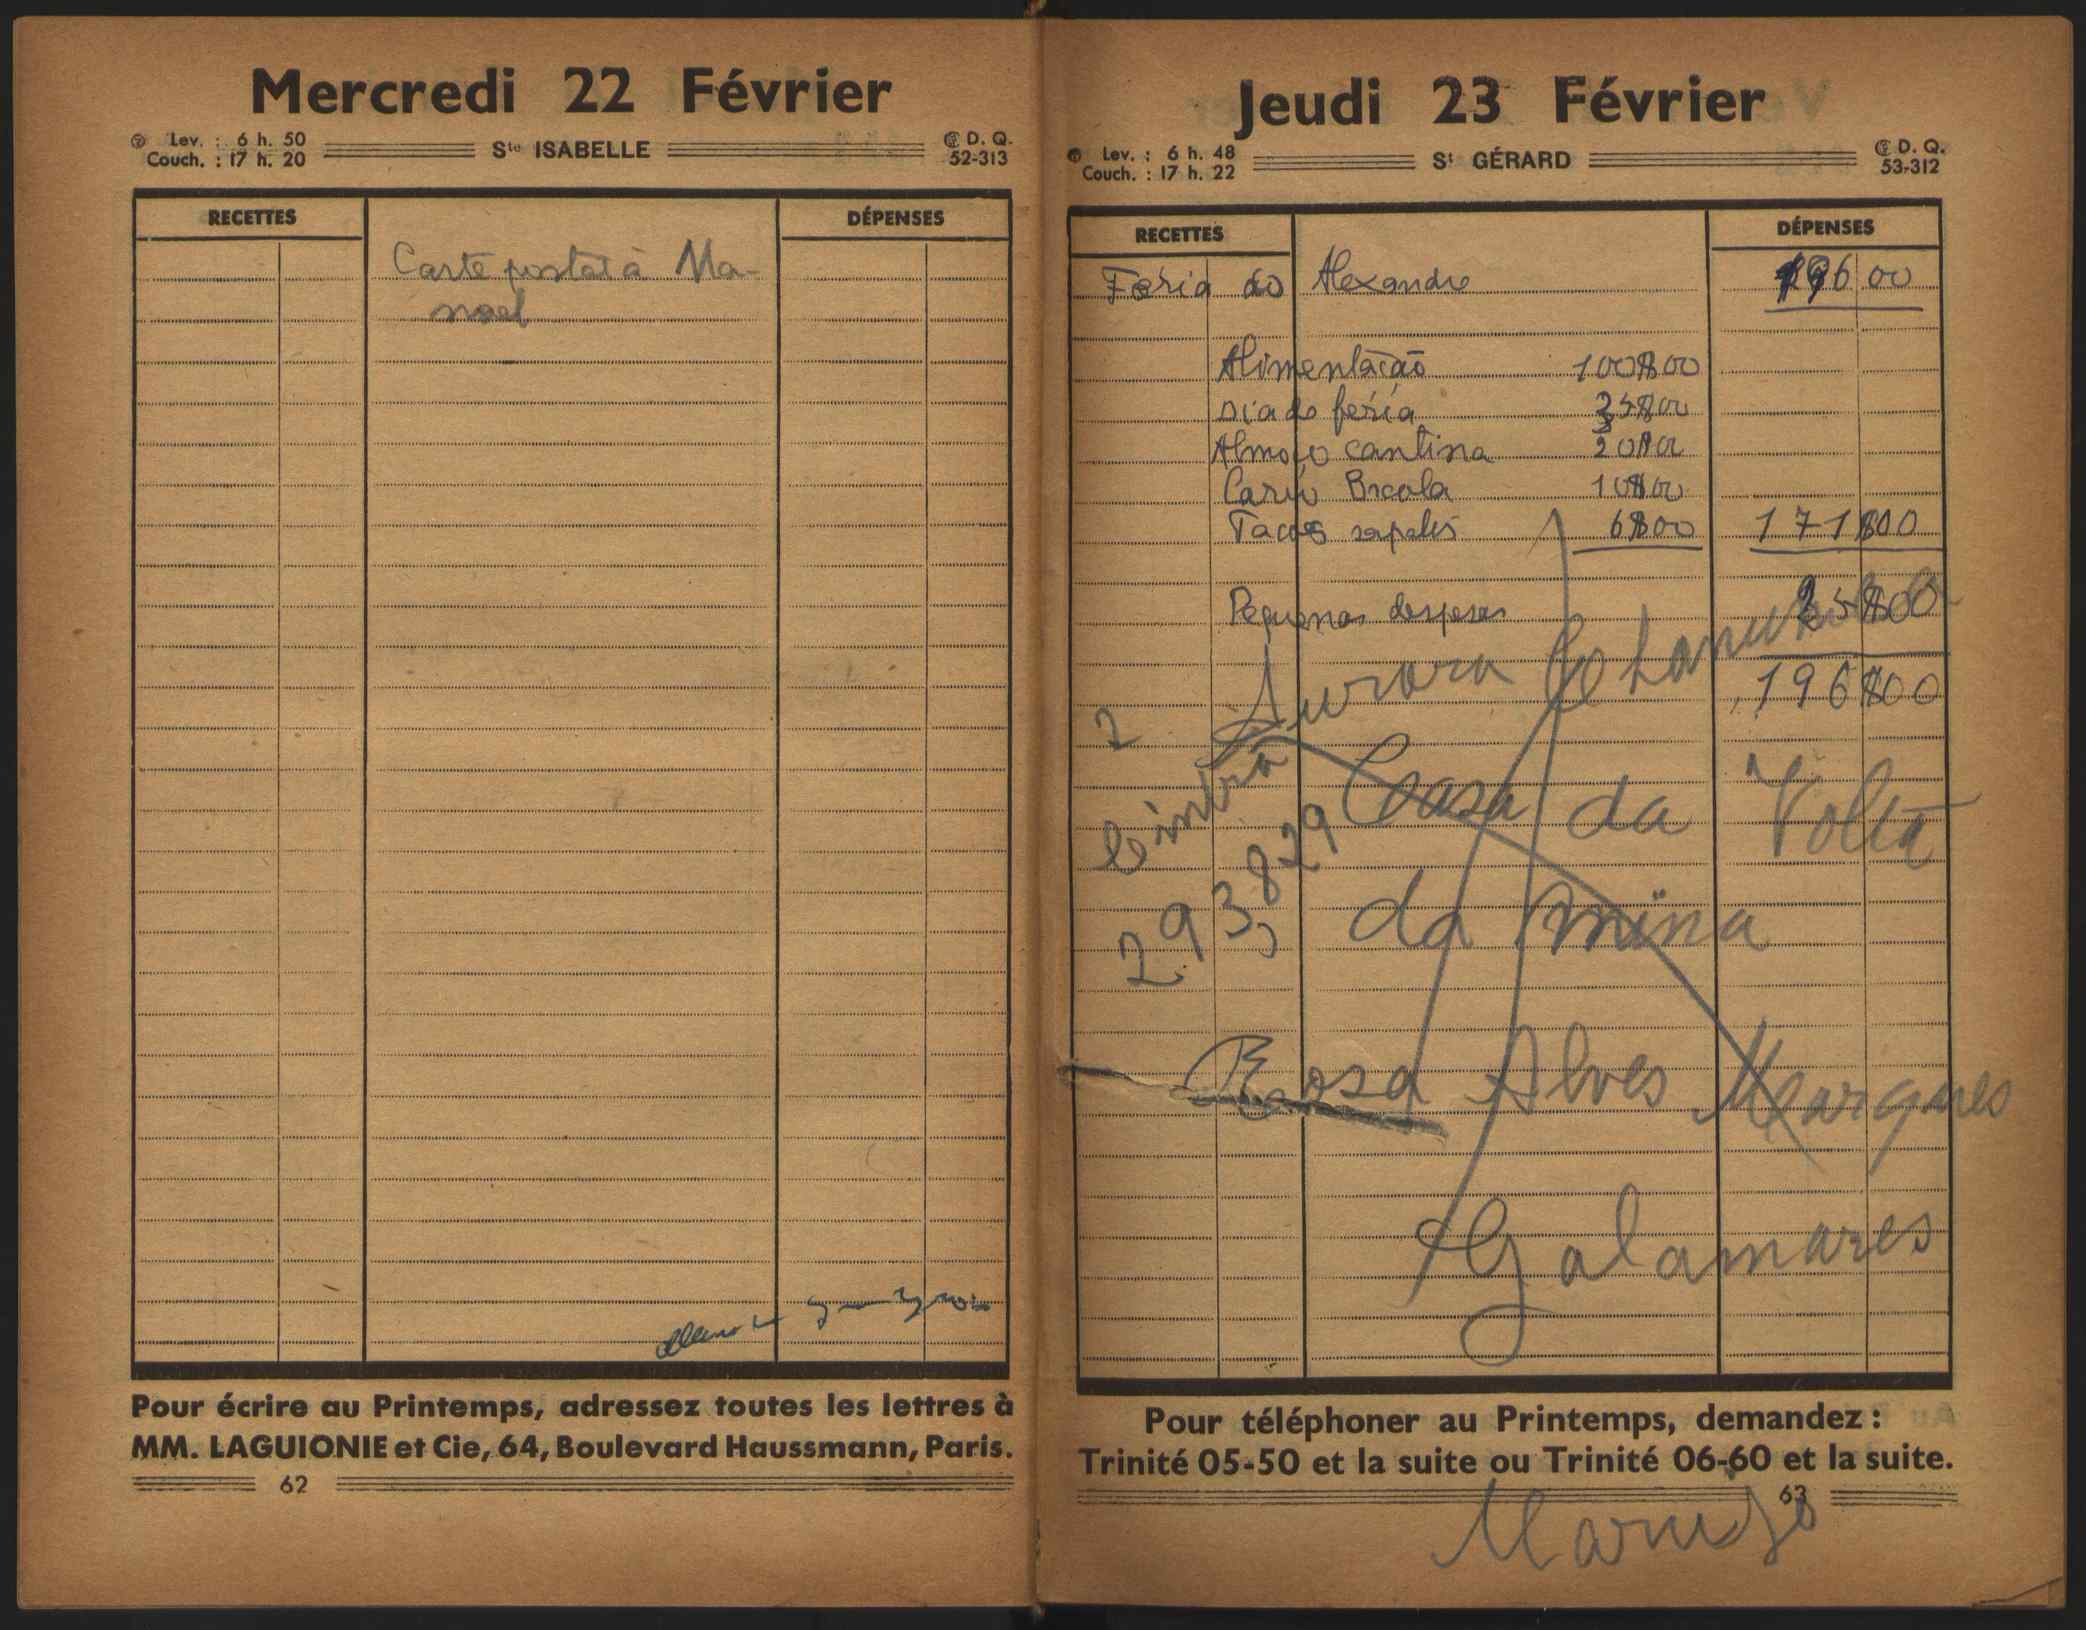 Mercredi 22 Février
Lev. : 6 h. 50
Couch. : 17 h. 20
Ste ISABELLE
D. Q.
52-313
RECETTES
DÉPENSES
Carte postal à Ma-
noel
Pour écrire au Printemps, adressez toutes les lettres à
MM. LAGUIONIE et Cie, 64, Boulevard Haussmann, Paris.
62
Jeudi 23 Février
Lev. : 6 h. 48
Couch. : 17 h. 22
St GÉRARD
D. Q.
53-312
RECETTES
DÉPENSES
Feria do Alexandre 196 00
Alimentação 100$00
dia de feria 35$00
Almoço cantina 20$00
Escola 10$00
6$00 171$00
Pequenas despesas 25$00
196$00
Aurora
2
Cintra
Casa da Volta
293,829
da mina
Rosa Alves Marques
Galamares
Pour téléphoner au Printemps, demandez :
Trinité 05-50 et la suite ou Trinité 06-60 et la suite.
63